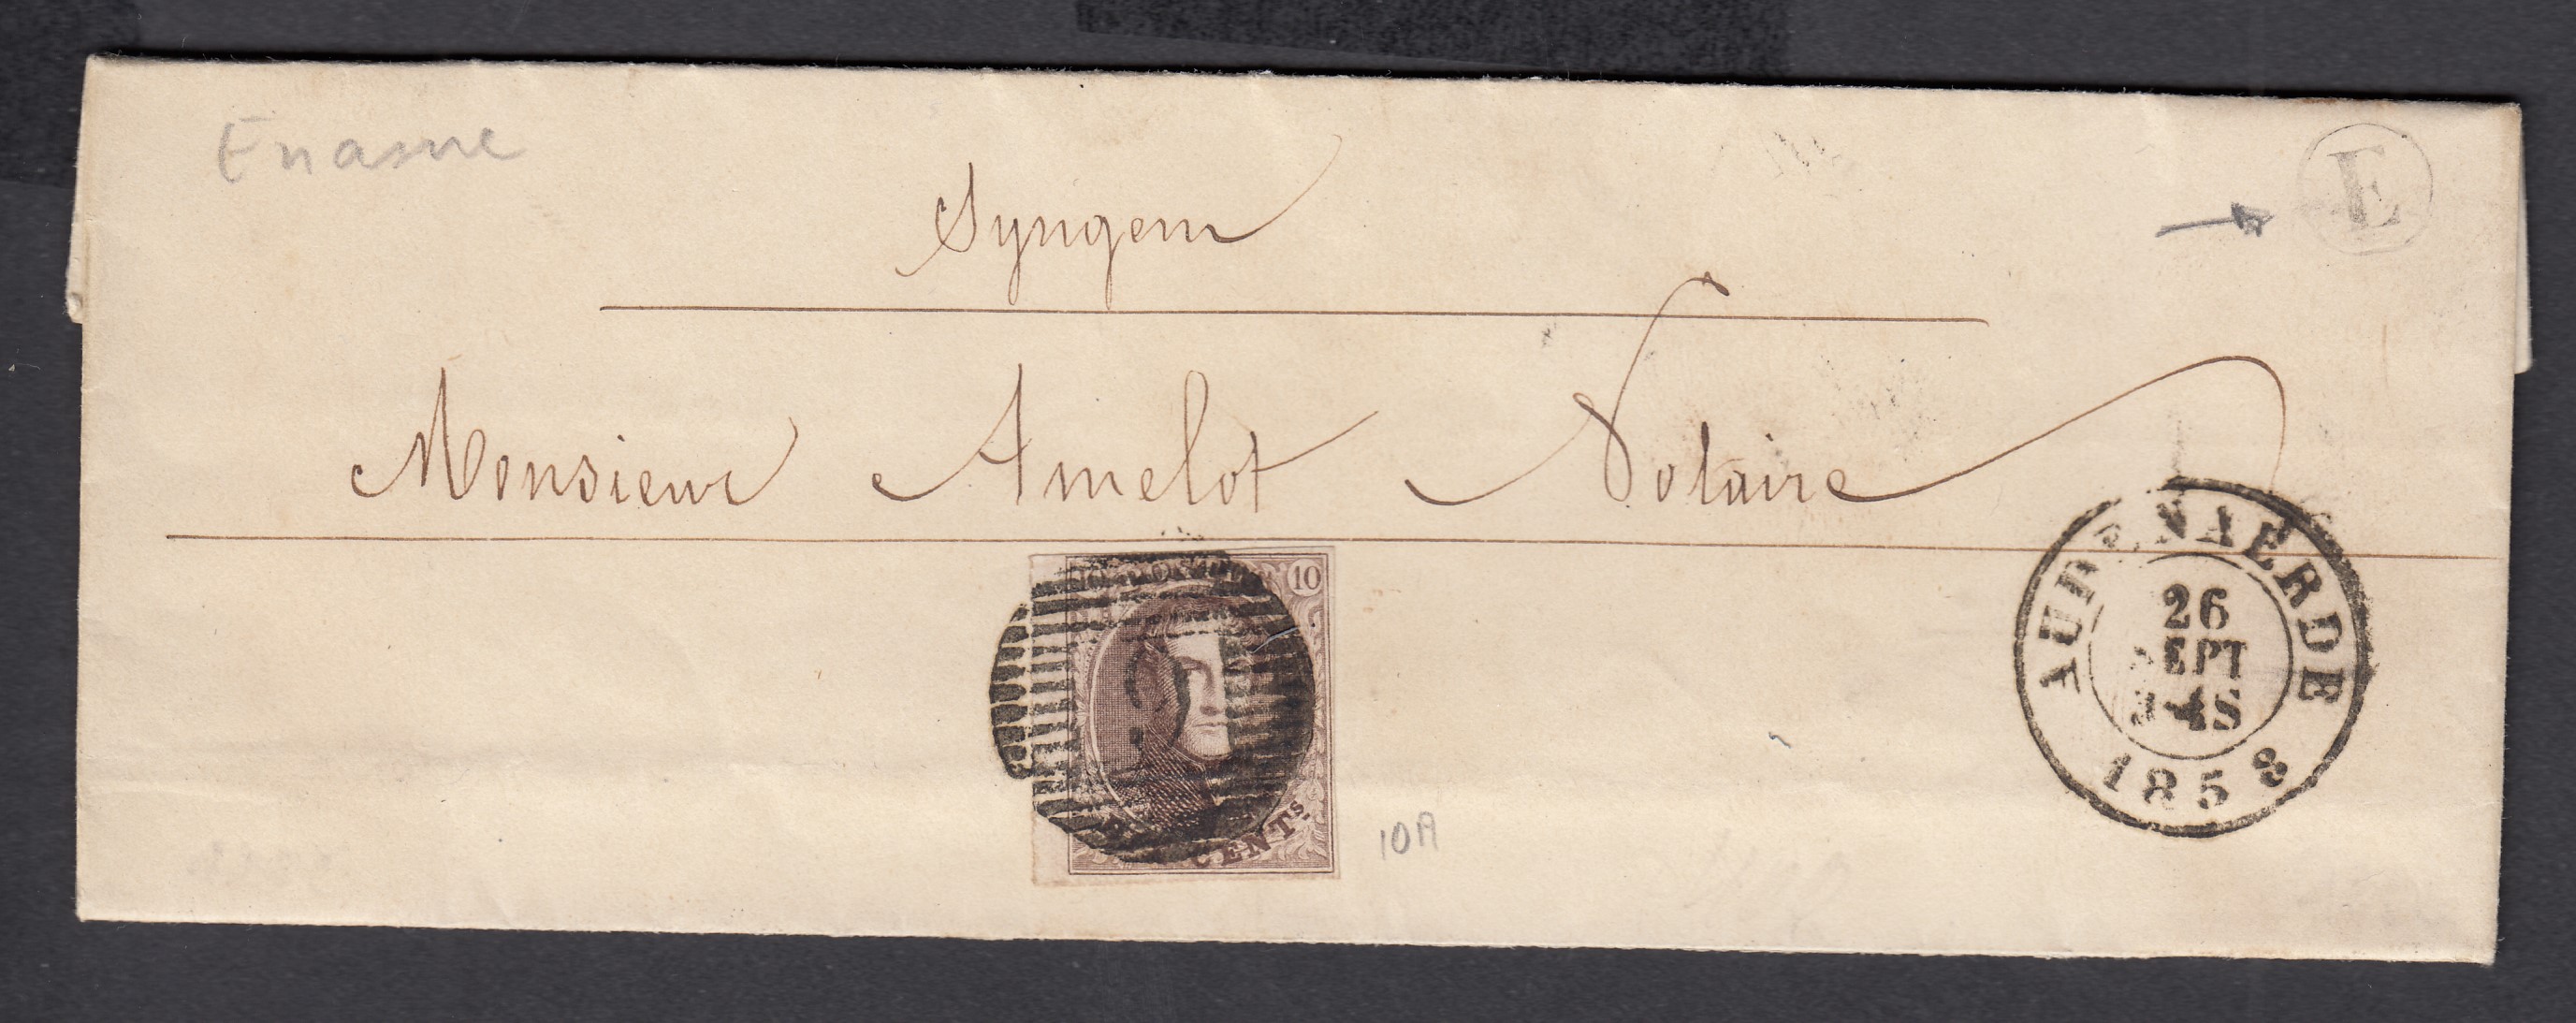 Enasme
E
Syngem
Monsieur Amelot Notaire
10
CENTs
10A
AUDENAERDE
26
SEPT
1858